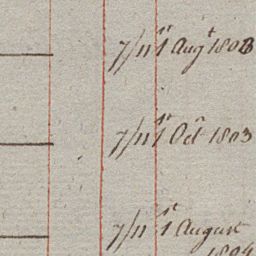 7/11 1st Augt 1803
7/11 1st Oct 1803
7/11 1st August
1804